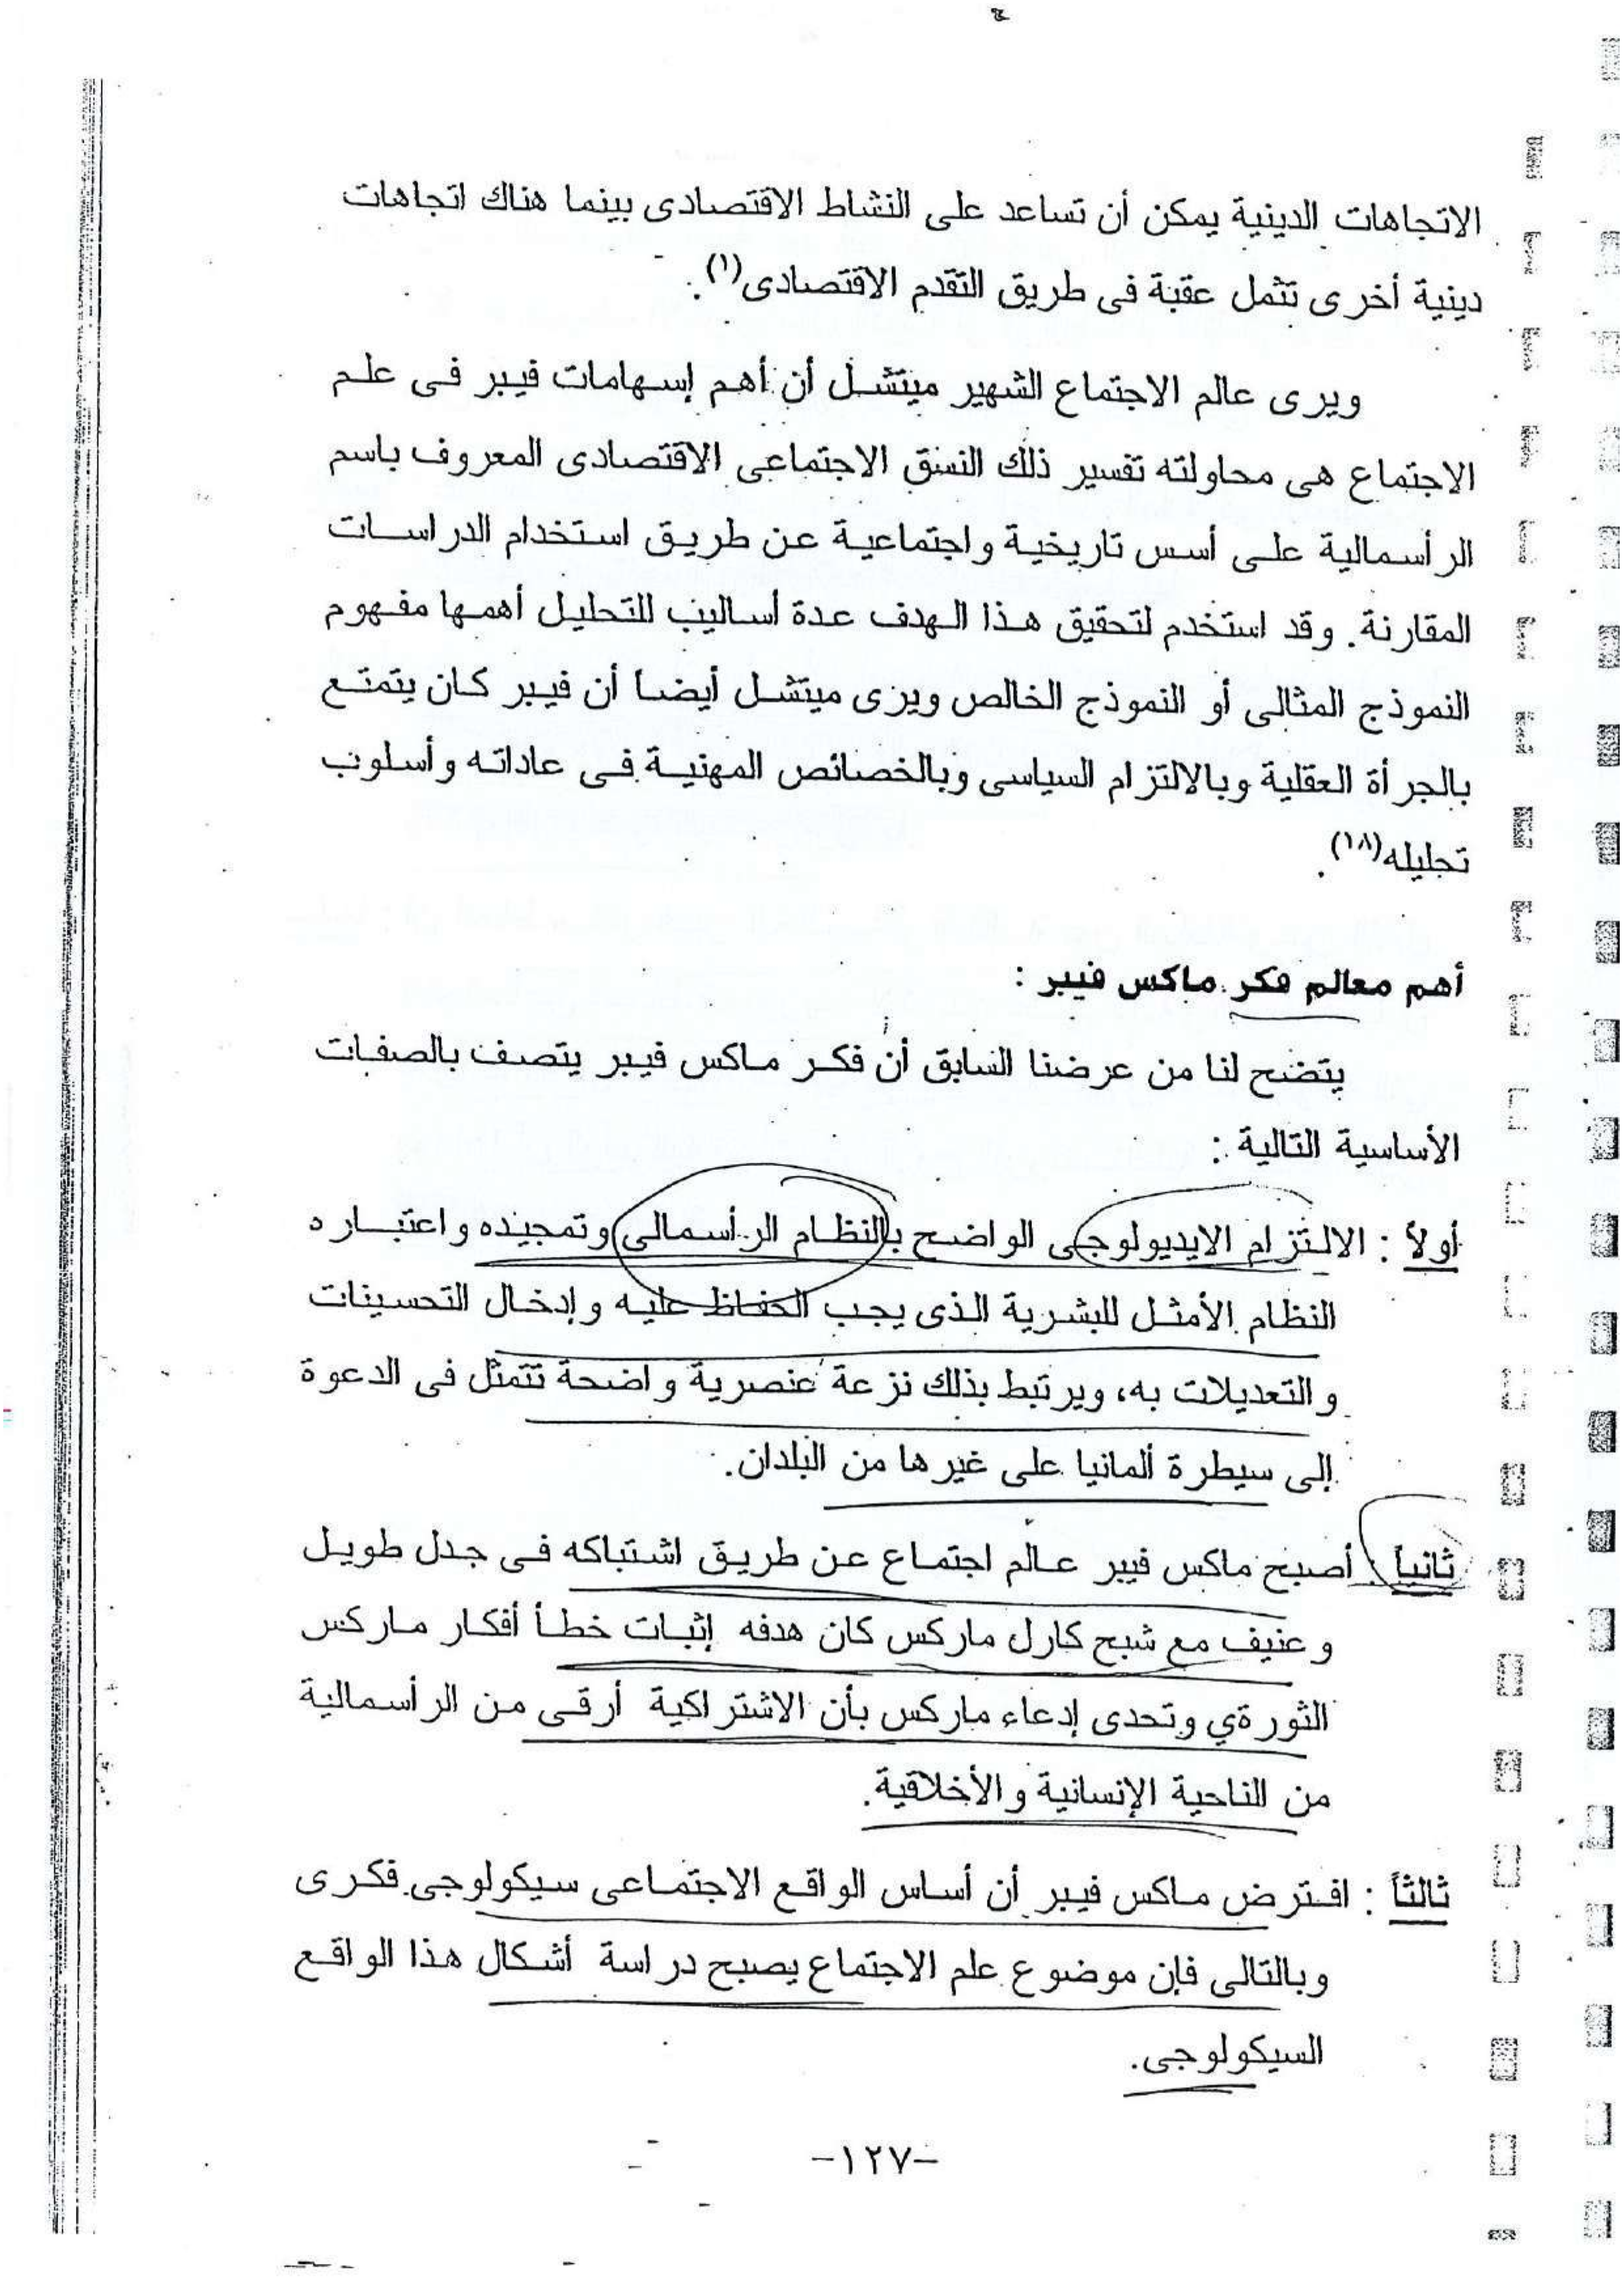 الاتجاهات الدينية يمكن أن تساعد على النشاط الاقتصادى بينما هناك اتجاهات
دينية أخرى تثمل عقبة فى طريق التقدم الاقتصادى(١).
ويرى عالم الاجتماع الشهير ميتشل أن أهم إسهامات فيبر فى علم
الاجتماع هى محاولته تفسير ذلك النسق الاجتماعى الاقتصادى المعروف باسم
الرأسمالية على أسس تاريخية واجتماعية عن طريق استخدام الدراسات
المقارنة. وقد استخدم لتحقيق هذا الهدف عدة أساليب للتحليل أهمها مفهوم
النموذج المثالى أو النموذج الخالص ويرى ميتشل أيضا أن فيبر كان يتمتع
بالجرأة العقلية وبالالتزام السياسى وبالخصائص المهنية فى عاداته وأسلوب
تحليله(١٨).
أهم معالم فكر ماكس فيبر :
يتضح لنا من عرضنا السابق أن فكر ماكس فيبر يتصف بالصفات
الأساسية التالية :
أولاً : الالتزام الايديولوجى الواضح بالنظام الرأسمالى وتمجيده واعتباره
النظام الأمثل للبشرية الذى يجب الحفاظ عليه وإدخال التحسينات
والتعديلات به، ويرتبط بذلك نزعة عنصرية واضحة تتمثل فى الدعوة
إلى سيطرة ألمانيا على غيرها من البلدان.
ثانياً : أصبح ماكس فيبر عالم اجتماع عن طريق اشتباكه فى جدل طويل
وعنيف مع شبح كارل ماركس كان هدفه إثبات خطأ أفكار ماركس
الثورةي وتحدى إدعاء ماركس بأن الاشتراكية أرقى من الرأسمالية
من الناحية الإنسانية والأخلاقية.
ثالثاً : افترض ماكس فيبر أن أساس الواقع الاجتماعى سيكولوجى فكرى
وبالتالى فإن موضوع علم الاجتماع يصبح دراسة أشكال هذا الواقع
السيكولوجى.
-١٢٧-